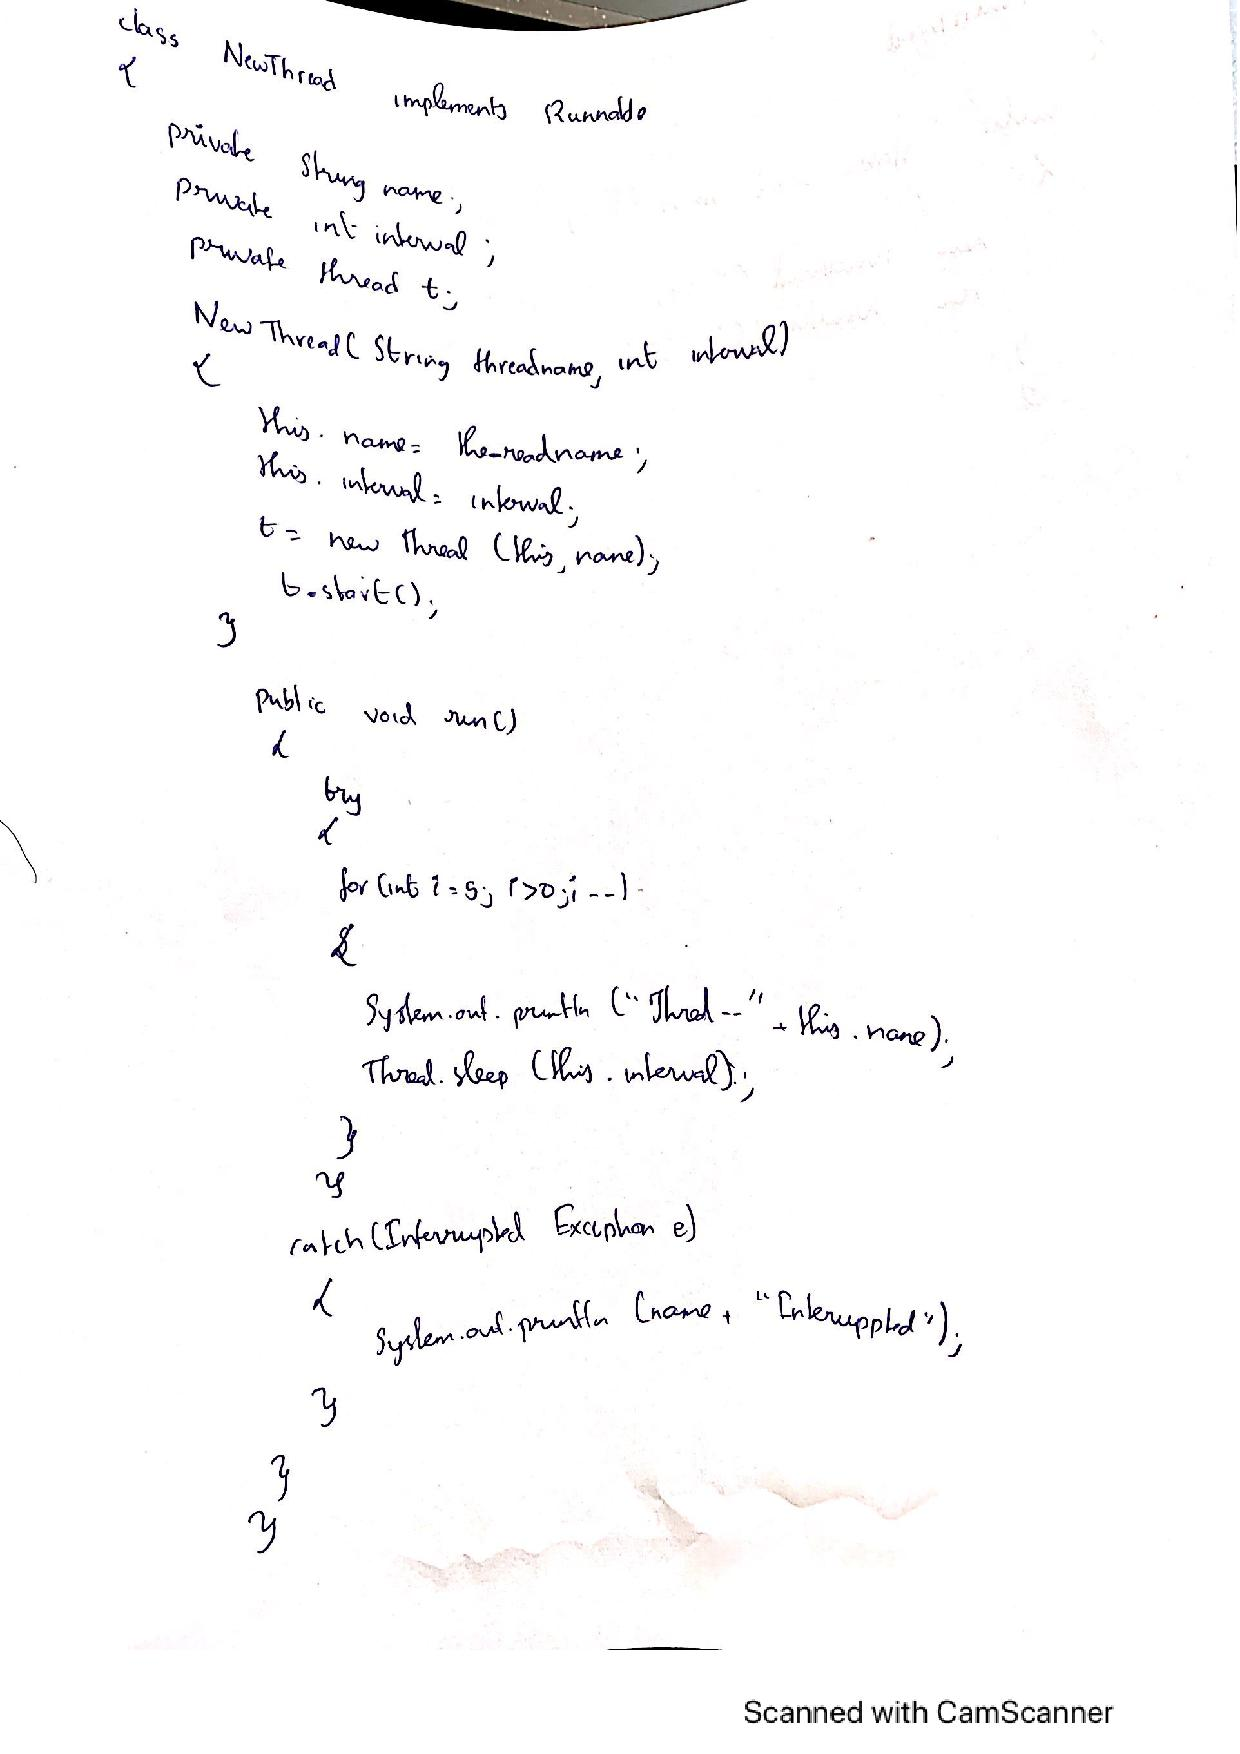 class NewThread implements Runnable
{
private String name;
private int interval;
private thread t;
NewThread( String threadname, int interval)
{
this. name= the_readname;
this. interval= interval;
t= new thread (this, name);
t.start();
}
public void run()
{
try
{
for (int i=5; i>0;i--)
{
System.out. println ("Thread--" + this. name);
Thread. sleep (this. interval);
}
}
catch(Interrupted Exception e)
{
System.out.println (name + "Interuppted");
}
}
}
Scanned with CamScanner